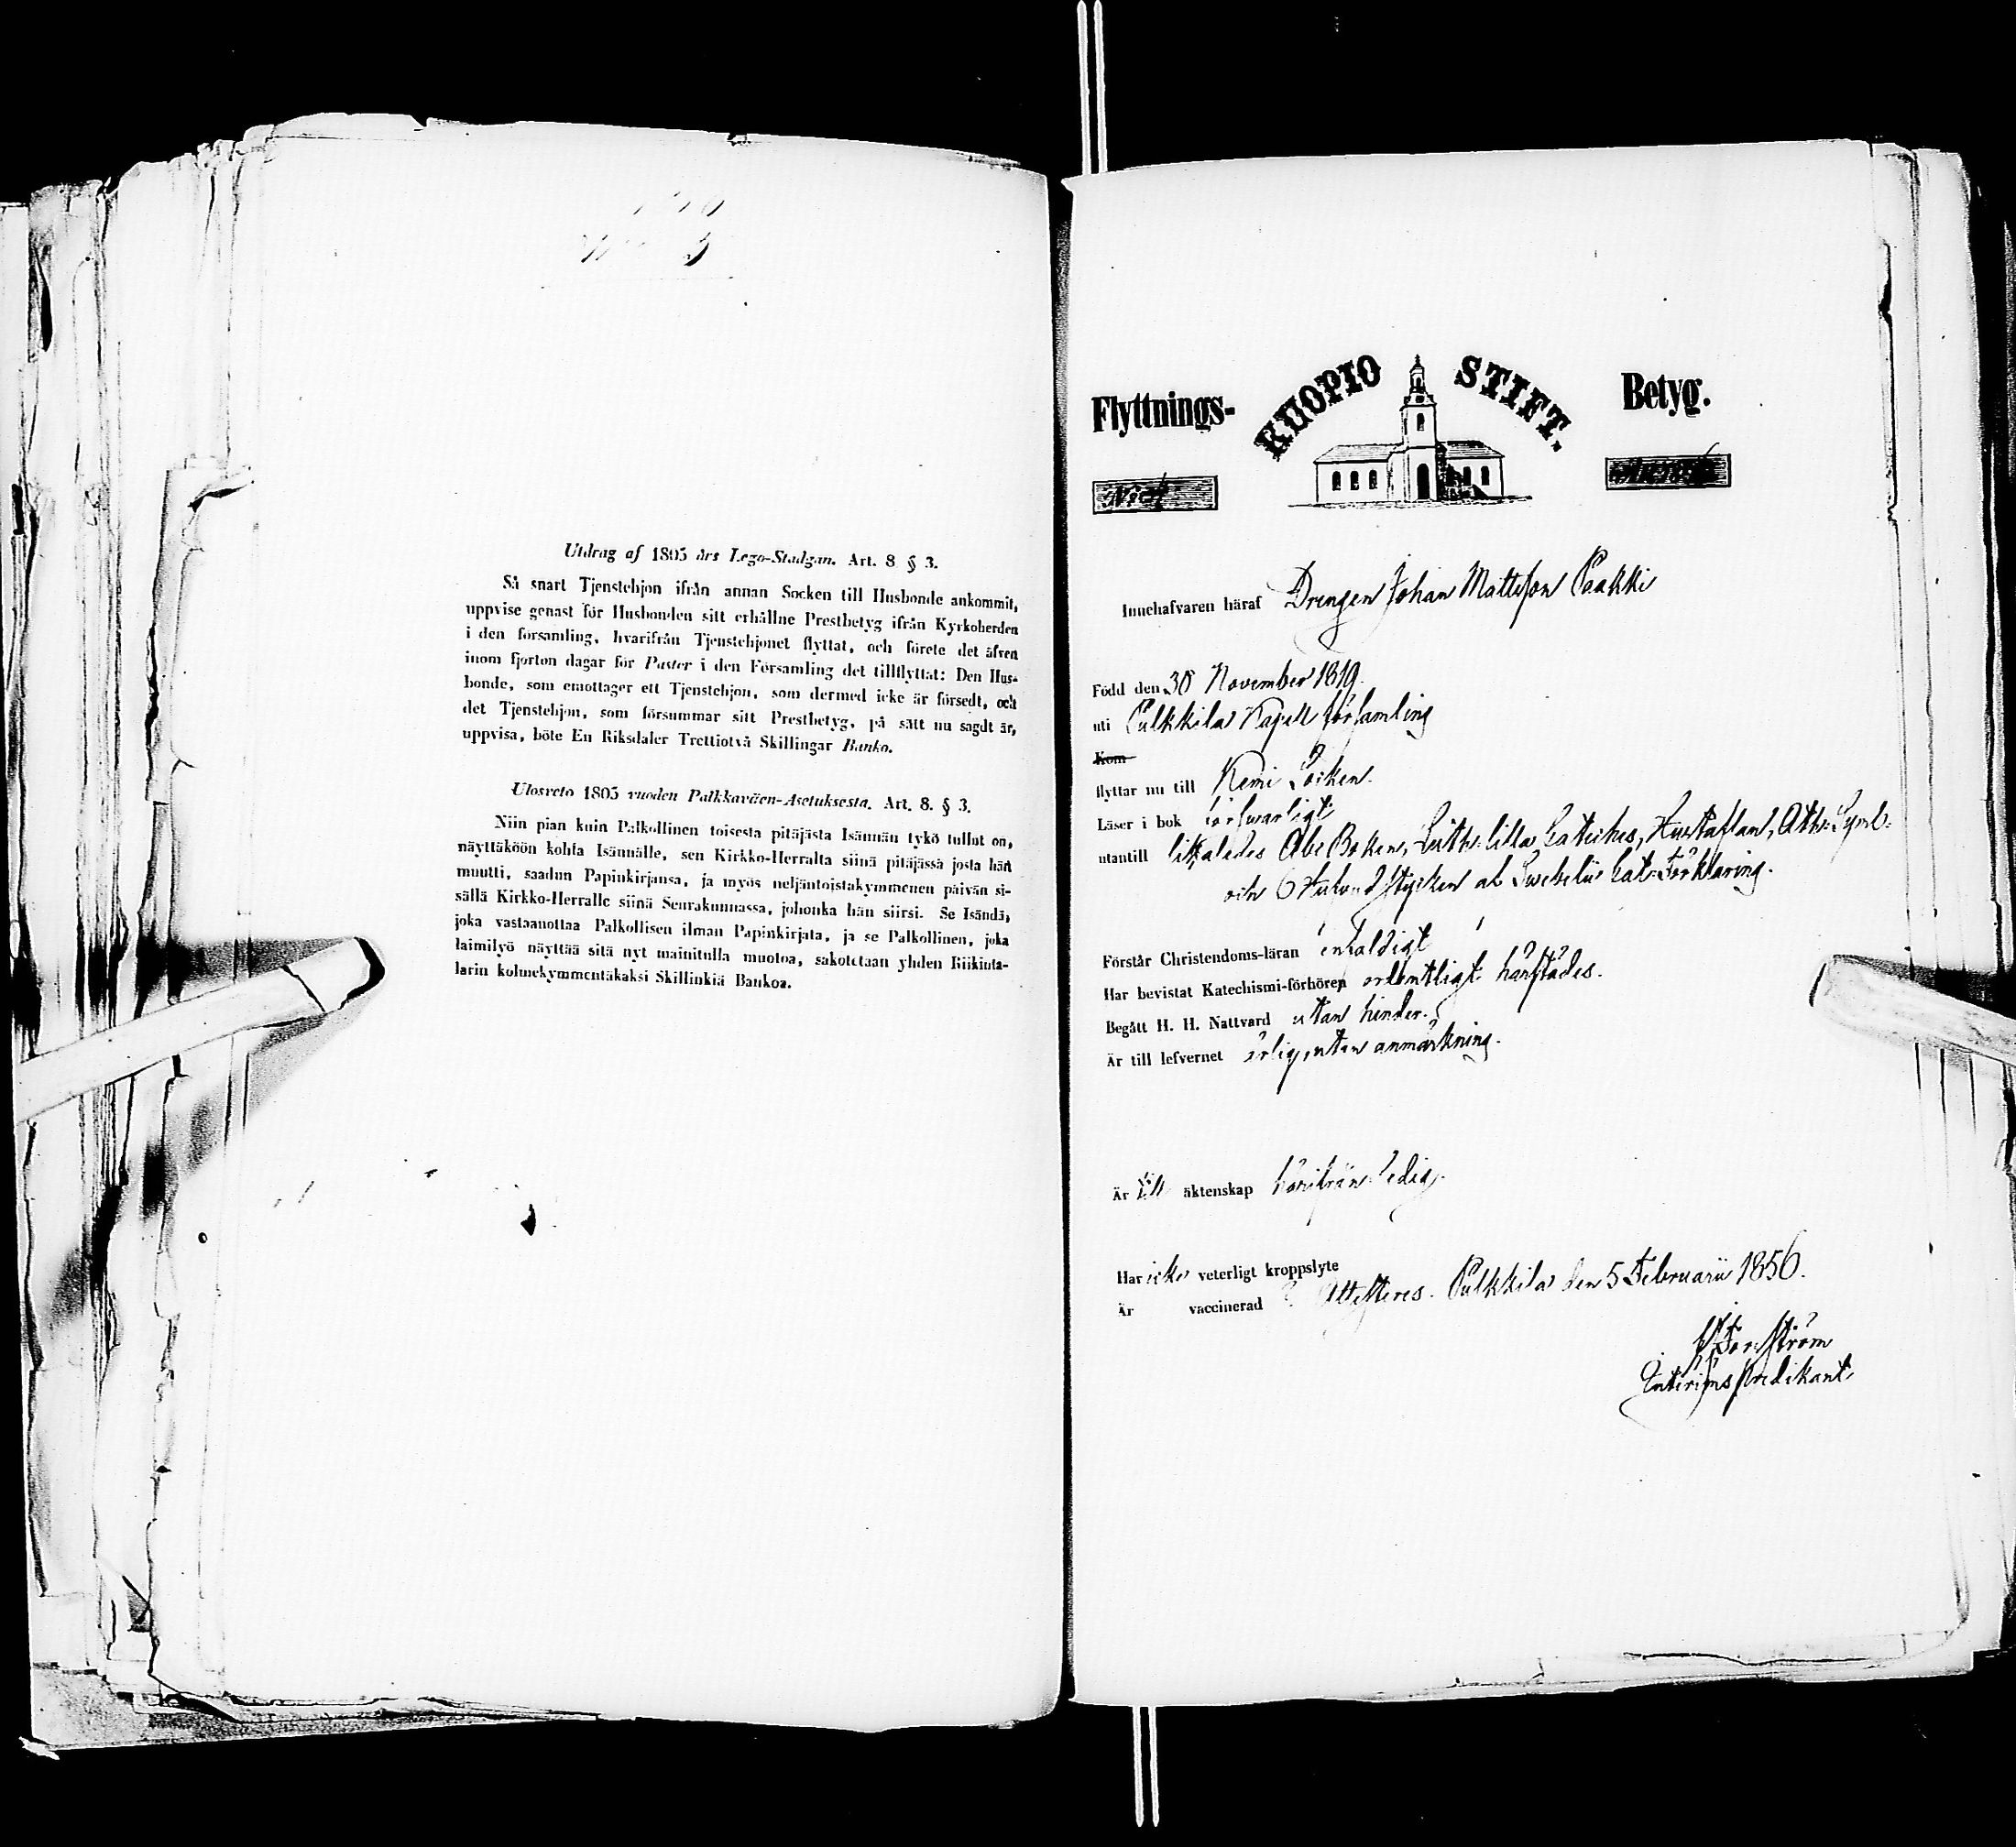 Utdrag af 1805 års Lego-Stadgan. Art. 8 § 3.
Så snart Tjenstehjon ifrån annan Socken till Husbonde ankommit,
uppvise genast för Husbonden sitt erhållne Prestbetyg ifrån Kyrkoherden
i den församling, hvarifrån Tjenstehjonet flyttat, och förete det äfven
inom fjorton dagar för Pastor i den Församling det tillflyttat: Den Hus-
bonde, som emottager ett Tjenstehjon, som dermed icke är försedt, och
det Tjenstehjon, som försummar sitt Prestbetyg, på sätt nu sagdt är,
uppvisa, böte En Riksdaler Trettiotvå Skillingar Banko.
Ulosveto 1805 vuoden Palkkaväen-Asetuksesta. Art. 8. § 3.
Niin pian kuin Palkollinen toisesta pitäjästa Isännän tykö tullut on,
näyttäköön kohta Isännälle, sen Kirkko-Herralta siinä pitäjässä josta hän
muutti, saadun Papinkirjansa, ja myös neljäntoistakymmenen päivän si-
sällä Kirkko-Herralle siinä Seurakunnassa, johonka hän siirsi. Se Isändä,
joka vastaanottaa Palkollisen ilman Papinkirjata, ja se Palkollinen, joka
laimilyö näyttää sitä nyt mainitulla muotoa, sakotetaan yhden Riikinta-
larin kolmekymmentäkaksi Skillinkiä Bankoa.
Flyttnings- KUOPIO STIFT. Betyg.
Innehafvaren häraf Drengen Johan Mattsson Paakki
Född den 30 November 1819.
uti Pulkkila Kapell församling
Kom
flyttar nu till Kemi Socken.
Läser i bok försvarligt
utantill likaledes Abc Boken, Luth: lilla Cateches, Hustaflan, Ath: Symb:
och 6 Hufvudstycken af Swebelii Cat: Förklaring.
Förstår Christendoms-läran enfaldigt
Har bevistat Katechismi-förhören ordentligt härstädes.
Begått H. H. Nattvard utan hinder.
Är till lefvernet ärlig, utan anmärkning.
Är till äktenskap härifrån ledig.
Har icke veterligt kroppslyte
Är vaccinerad Attesteres. Pulkkila den 5 Februarii 1856.
Interims predikant